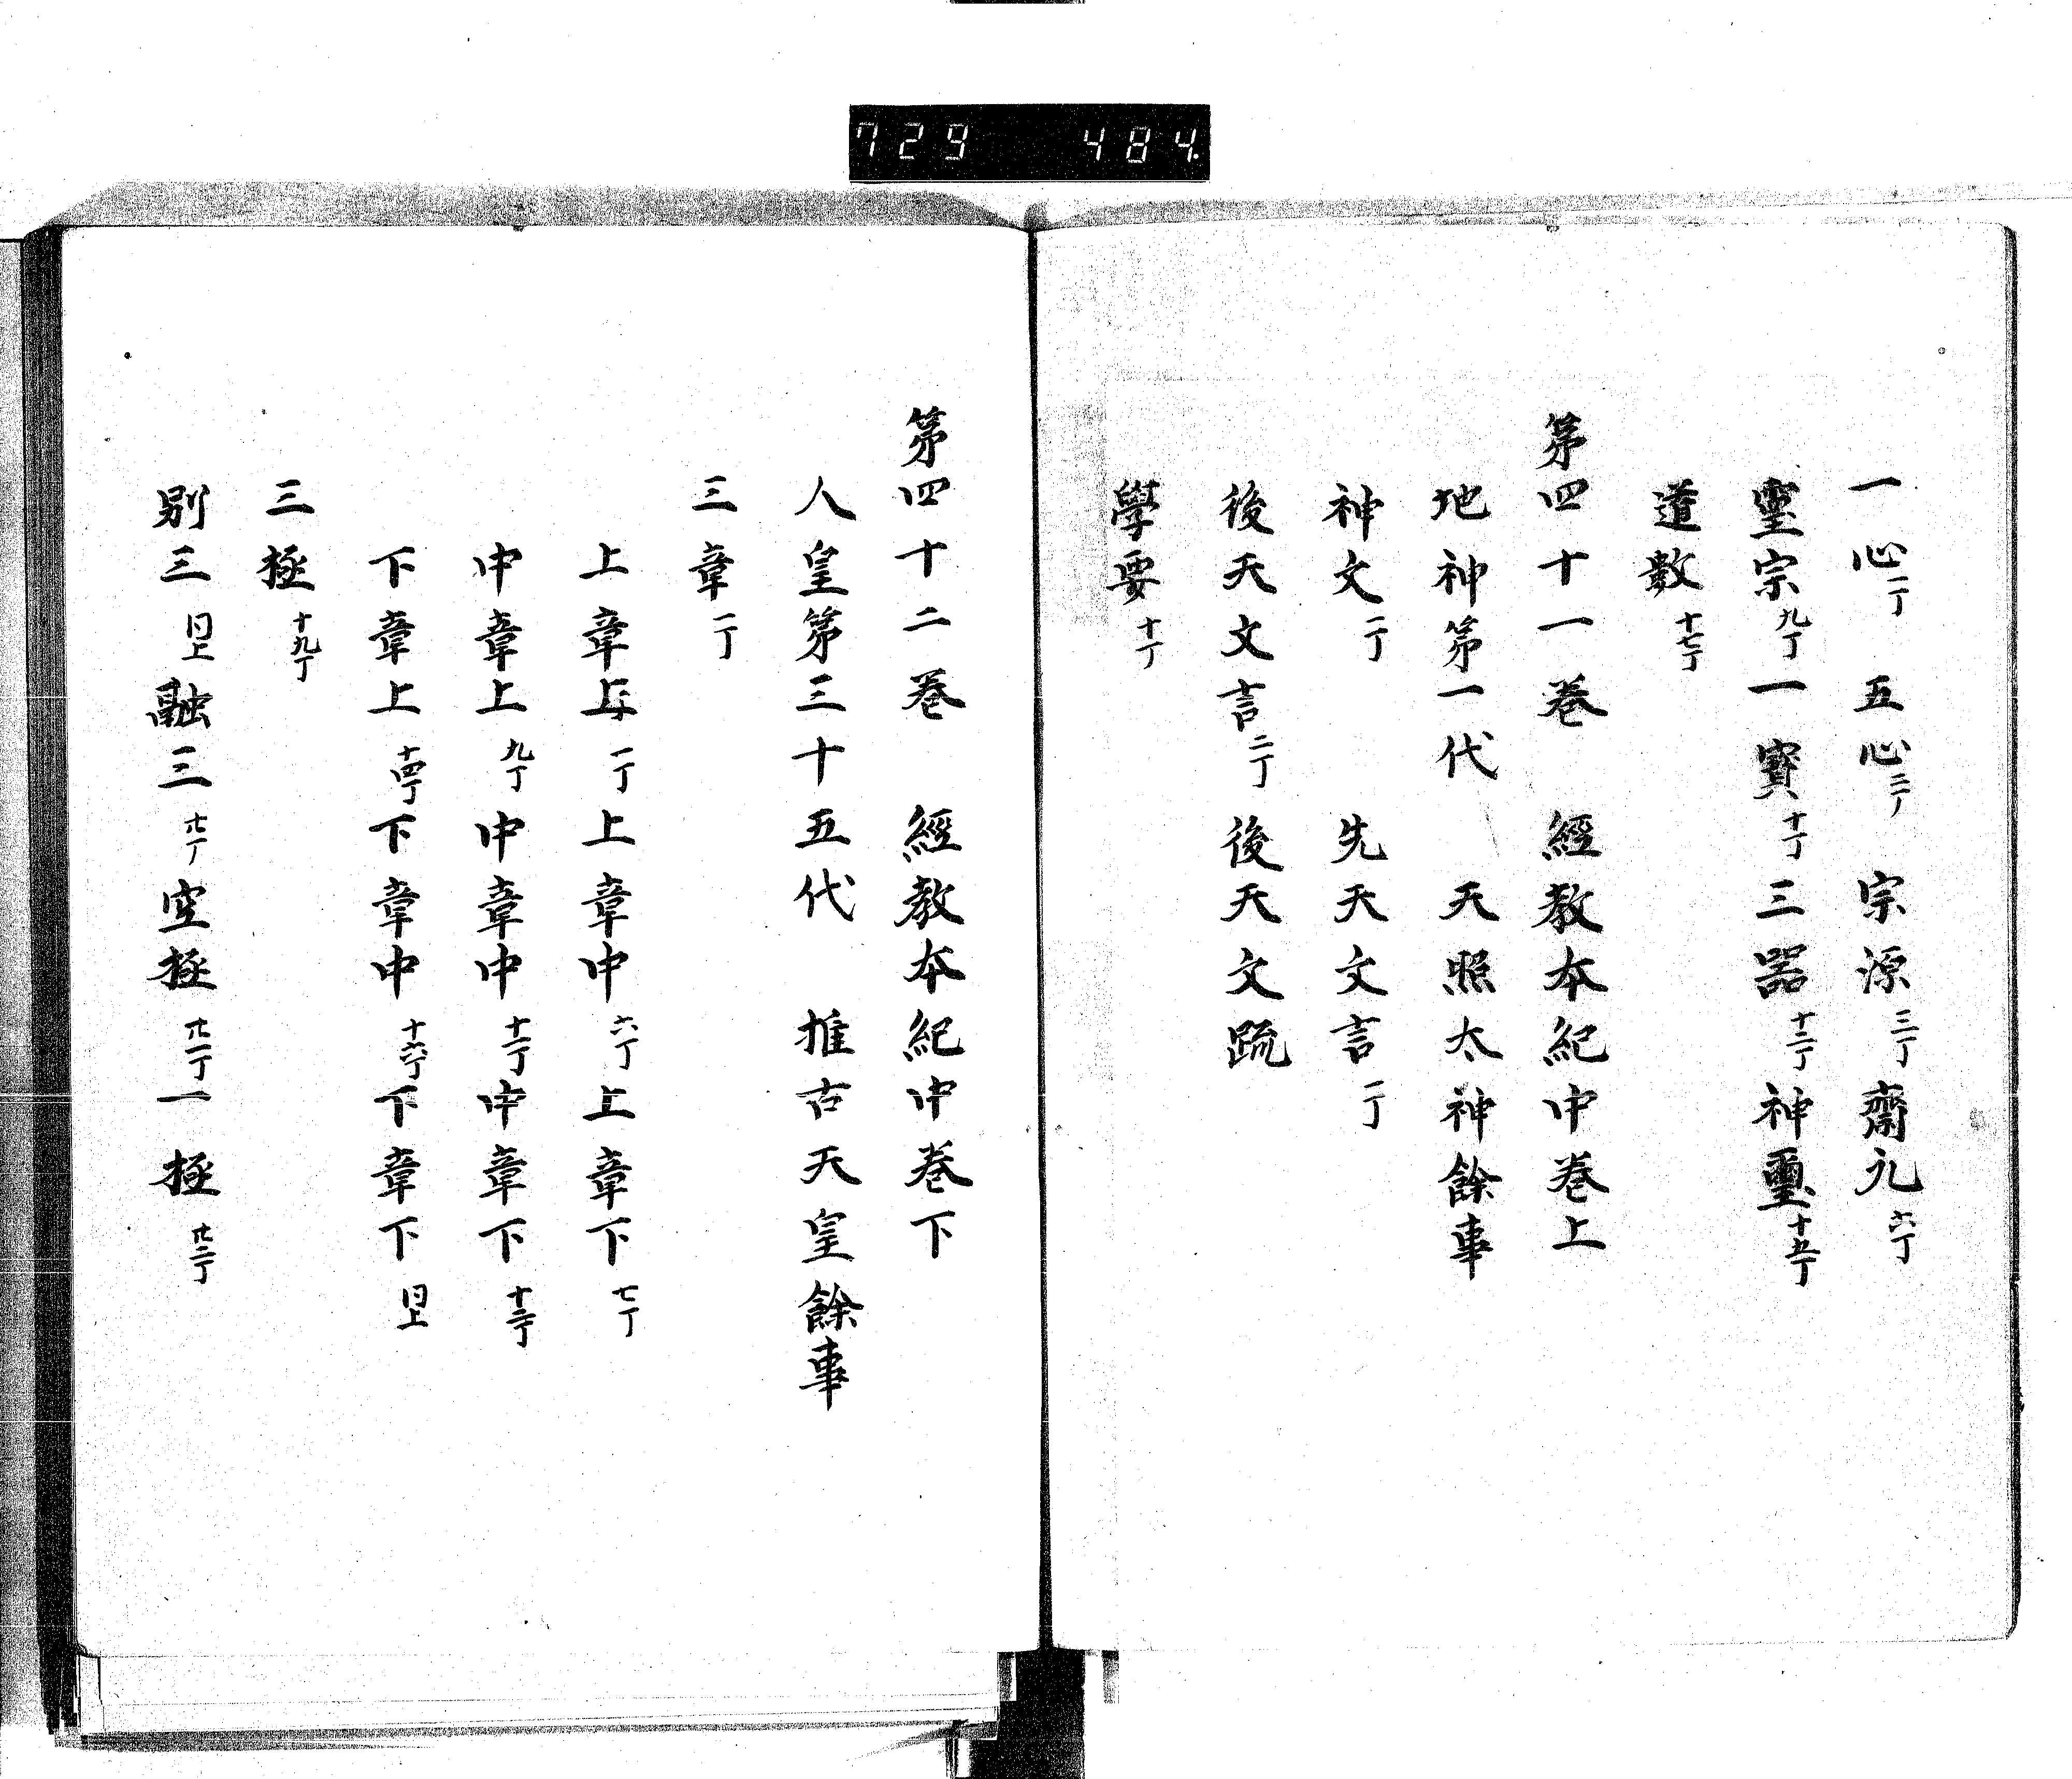 729 484
一心一丁 五心二丁 宗源三丁 齋元六丁
靈宗九丁 一寶十丁 三器十二丁 神璽十五丁
道數十七丁
第四十一巻 經教本紀中巻上
地神第一代 天照太神餘事
神文一丁 先天文言一丁
後天文言二丁 後天文䟽
學要十丁
第四十二巻 經教本紀中巻下
人皇第三十五代 推古天皇餘事
三章一丁
上章上一丁 上章中六丁 上章下七丁
中章上九丁 中章中十一丁 中章下十三丁
下章上十四丁 下章中十六丁 下章下同上
三極十九丁
別三同上 融三廿丁 空極廿一丁 一極廿二丁